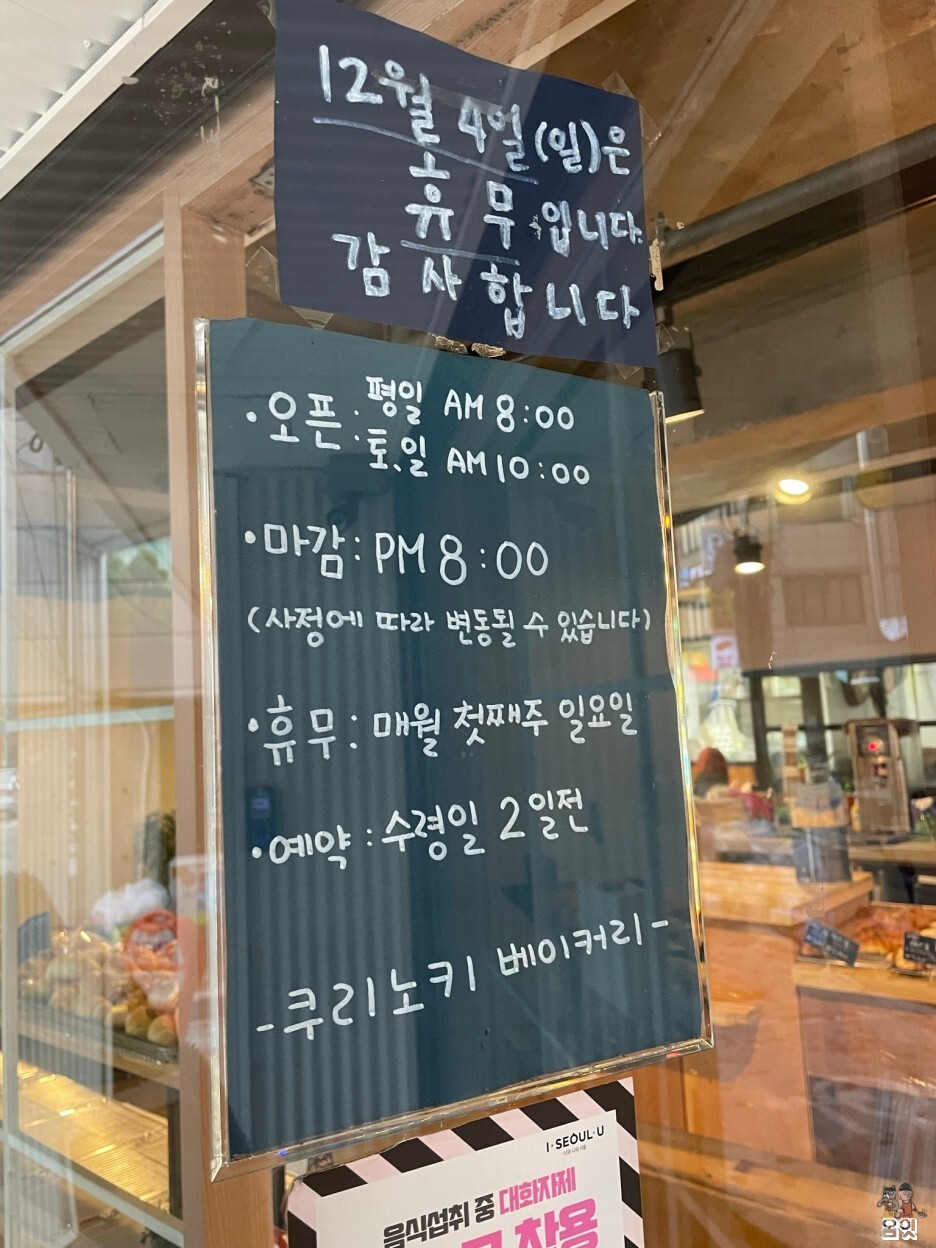 12월 4일(일)은
휴무입니다.
감사합니다
·오픈. 평일 AM 8:00
토.일 AM 10:00
·마감: PM 8:00
(사정에 따라 변동될 수 있습니다)
·휴무: 매월 첫째주 일요일
·예약: 수령일 2일전
-쿠리노키 베이커리-
I·SEOUL·U
음식섭취 중 대화자제
착용
욤잇